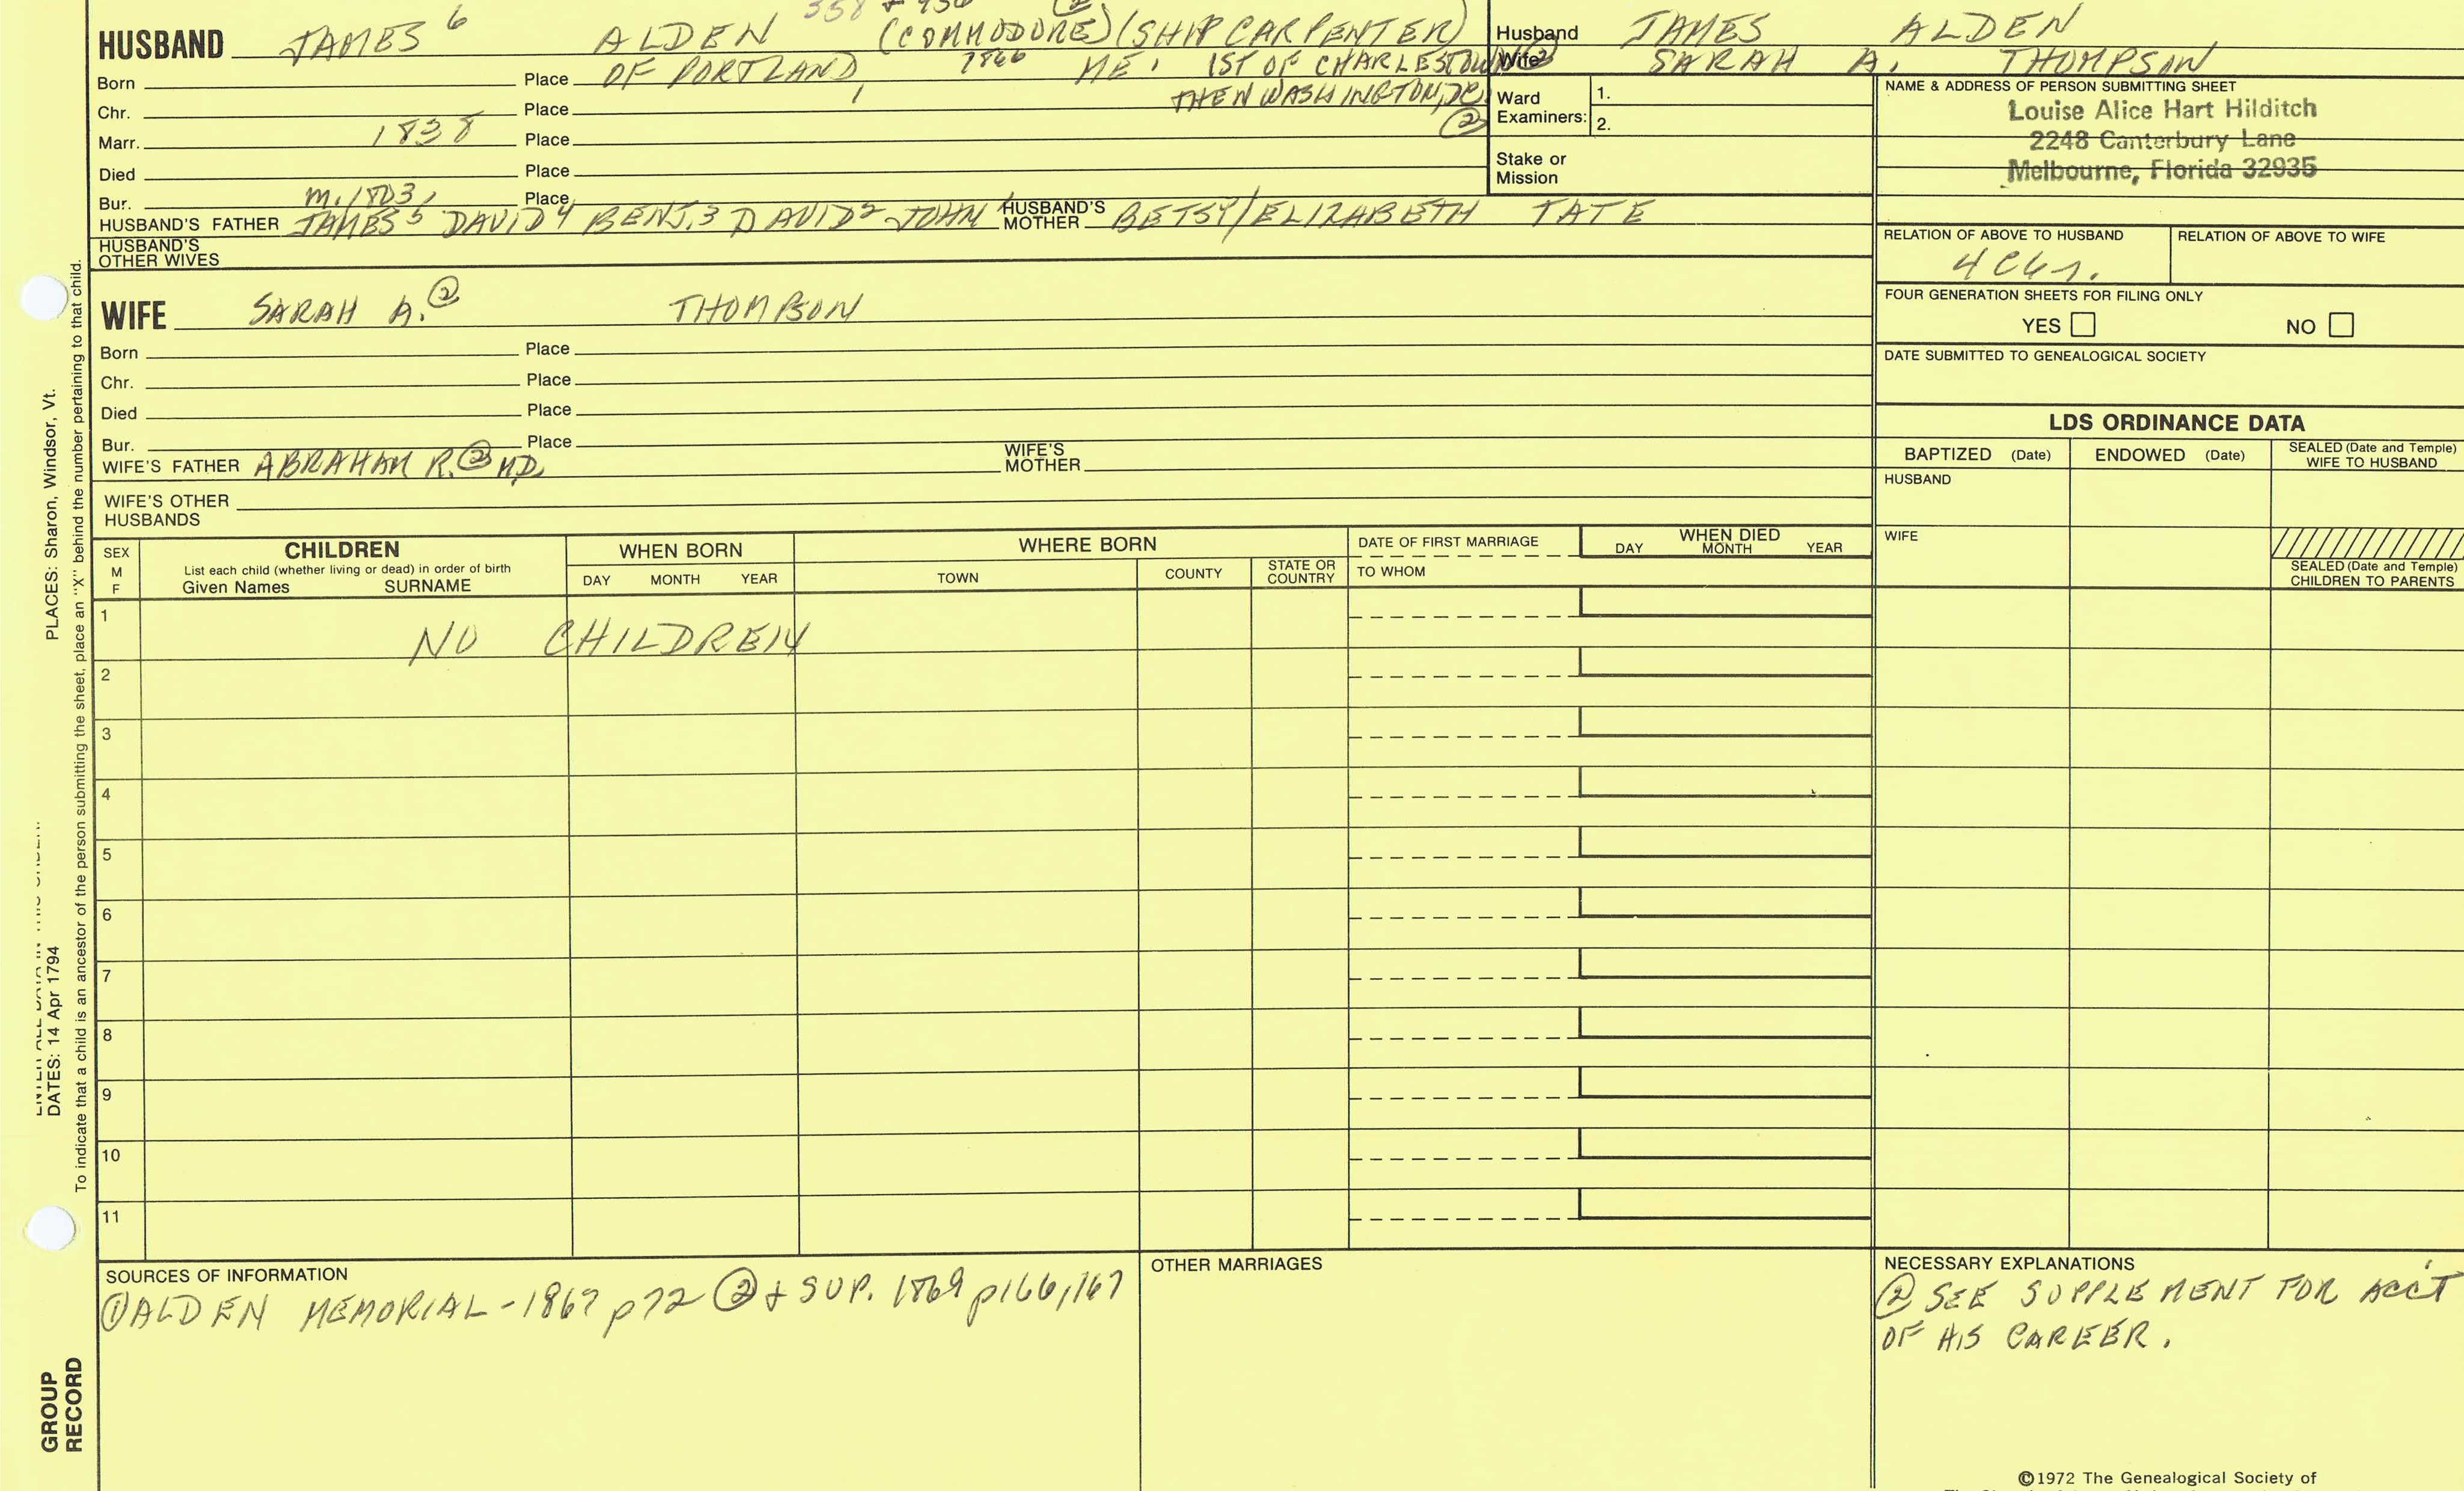 358 + 936 (2)
HUSBAND JAMES 6 ALDEN (COMMODORE) (SHIP CARPENTER)
Born Place OF PORTLAND, 1866 ME. 1ST OF CHARLESTOWN (2)
Chr. Place THEN WASHINGTON, DC
Marr. 1838 Place (2)
Died Place
Bur. Place
m. 1803,
HUSBAND'S FATHER JAMES 5 DAVID 4 BENJ. 3 DAVID 2 JOHN 1 HUSBAND'S MOTHER BETSY/ELIZABETH TATE
HUSBAND'S OTHER WIVES
Husband JAMES ALDEN
Wife SARAH A. THOMPSON
Ward Examiners: 1.
2.
Stake or Mission
NAME & ADDRESS OF PERSON SUBMITTING SHEET
Louise Alice Hart Hilditch
2248 Canterbury Lane
Melbourne, Florida 32935
RELATION OF ABOVE TO HUSBAND RELATION OF ABOVE TO WIFE
FOUR GENERATION SHEETS FOR FILING ONLY
YES NO
DATE SUBMITTED TO GENEALOGICAL SOCIETY
WIFE SARAH A. (2) THOMPSON
Born Place
Chr. Place
Died Place
Bur. Place
WIFE'S FATHER ABRAHAM R. (2) M.D. WIFE'S MOTHER
WIFE'S OTHER HUSBANDS
LDS ORDINANCE DATA
BAPTIZED (Date) ENDOWED (Date) SEALED (Date and Temple) WIFE TO HUSBAND
HUSBAND
WIFE
SEALED (Date and Temple) CHILDREN TO PARENTS
SEX M F
CHILDREN
List each child (whether living or dead) in order of birth
Given Names SURNAME
WHEN BORN
DAY MONTH YEAR
WHERE BORN
TOWN COUNTY STATE OR COUNTRY
DATE OF FIRST MARRIAGE
TO WHOM
WHEN DIED
DAY MONTH YEAR
1 NO CHILDREN
2
3
4
5
6
7
8
9
10
11
SOURCES OF INFORMATION
(1) ALDEN MEMORIAL - 1867 p 72 (2) + SUP. 1869 p 166, 167
OTHER MARRIAGES
NECESSARY EXPLANATIONS
(2) SEE SUPPLEMENT FOR ACC'T
OF HIS CAREER.
©1972 The Genealogical Society of
PLACES: Sharon, Windsor, Vt.
DATES: 14 Apr 1794
To indicate that a child is an ancestor of the person submitting the sheet, place an "X" behind the number pertaining to that child.
GROUP
RECORD